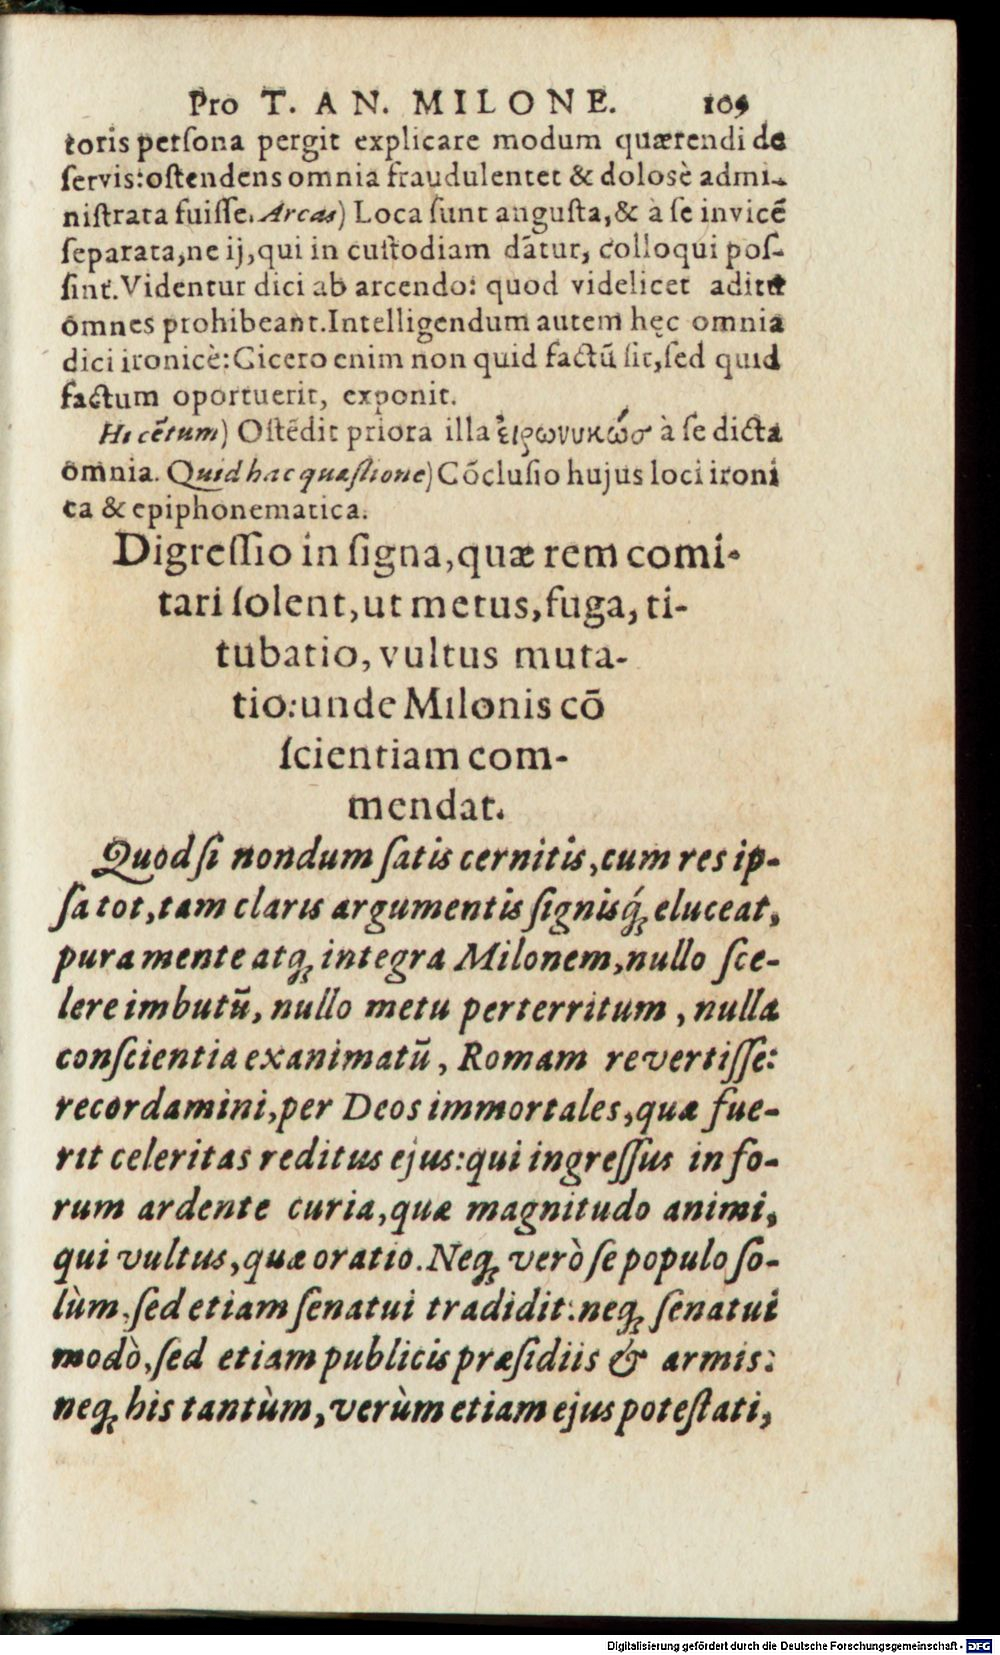 Pro T. AN. MILONE. 109
toris perſona pergit explicare modum quærendi de
ſervis: oſtendens omnia fraudulenter & dolosè admi-
niſtrata fuiſſe. Arcas) Loca ſunt anguſta, & à ſe invicẽ
ſeparata, ne ij, qui in cuſtodiam dãtur, colloqui poſ-
ſint. Videntur dici ab arcendo: quod videlicet aditu
omnes prohibeant. Intelligendum autem hęc omnia
dici ironicè: Cicero enim non quid factũ ſit, ſed quid
factum oportuerit, exponit.
Hi cẽtum) Oſtẽdit priora illa εἰρωνυκώσ à ſe dicta
omnia. Quid hac quæſtione) Cõcluſio hujus loci ironi
ca & epiphonematica.
Digreſſio in ſigna, quæ rem comi-
tari ſolent, ut metus, fuga, ti-
tubatio, vultus muta-
tio: unde Milonis cõ
ſcientiam com-
mendat.
Quod ſi nondum ſatis cernitis, cum res ip-
ſa tot, tam claris argumentis ſignisq́; eluceat,
pura mente atq; integra Milonem, nullo ſce-
lere imbutũ, nullo metu perterritum, nulla
conſcientia exanimatũ, Romam revertiſſe:
recordamini, per Deos immortales, quæ fue-
rit celeritas reditus ejus: qui ingreſſus in fo-
rum ardente curia, quæ magnitudo animi,
qui vultus, quæ oratio. Neq; verò ſe populo ſo-
lùm, ſed etiam ſenatui tradidit: neq; ſenatui
modò, ſed etiam publicis præſidiis & armis:
neq; his tantùm, verùm etiam ejus poteſtati,
Digitalisierung gefördert durch die Deutsche Forschungsgemeinschaft - DFG